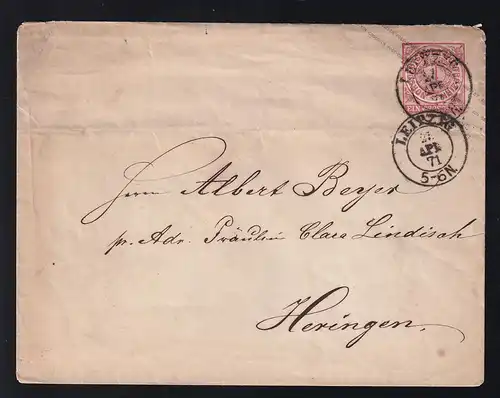 LEIPZIG
21
APR
LEIPZIG
21.
APR.
71
5-6N
Herrn Albert Beyer
pr. Adr. Fräulein Clara Lindisch
Heringen.